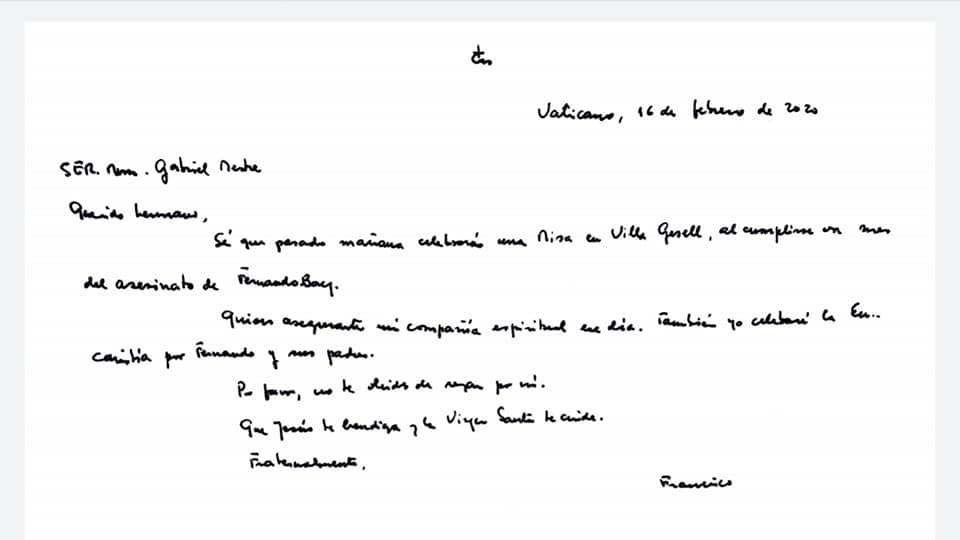 Vaticano, 16 de febrero de 2020
S.E.R. Mons. Gabriel Mestre
Querido hermano,
Sé que pasado mañana celebrarás una Misa en Villa Gesell, al cumplirse un mes
del asesinato de Fernando Baez.
Quiero asegurarte mi compañía espiritual ese día. También yo celebraré la Eu-
caristía por Fernando y sus padres.
Por favor, no te olvides de rezar por mí.
Que Jesús te bendiga y la Virgen Santa te cuide.
Fraternalmente,
Francisco